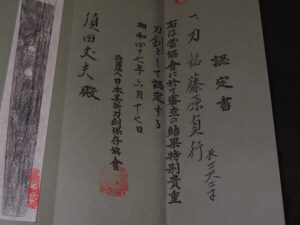 認定書
一、刀 銘 藤原貞行
右は當協會に於て審査の結果特別貴重
刀劍として認定する
昭和四十七年六月十七日
財團法人日本美術刀劍保存協會
須田丈夫殿